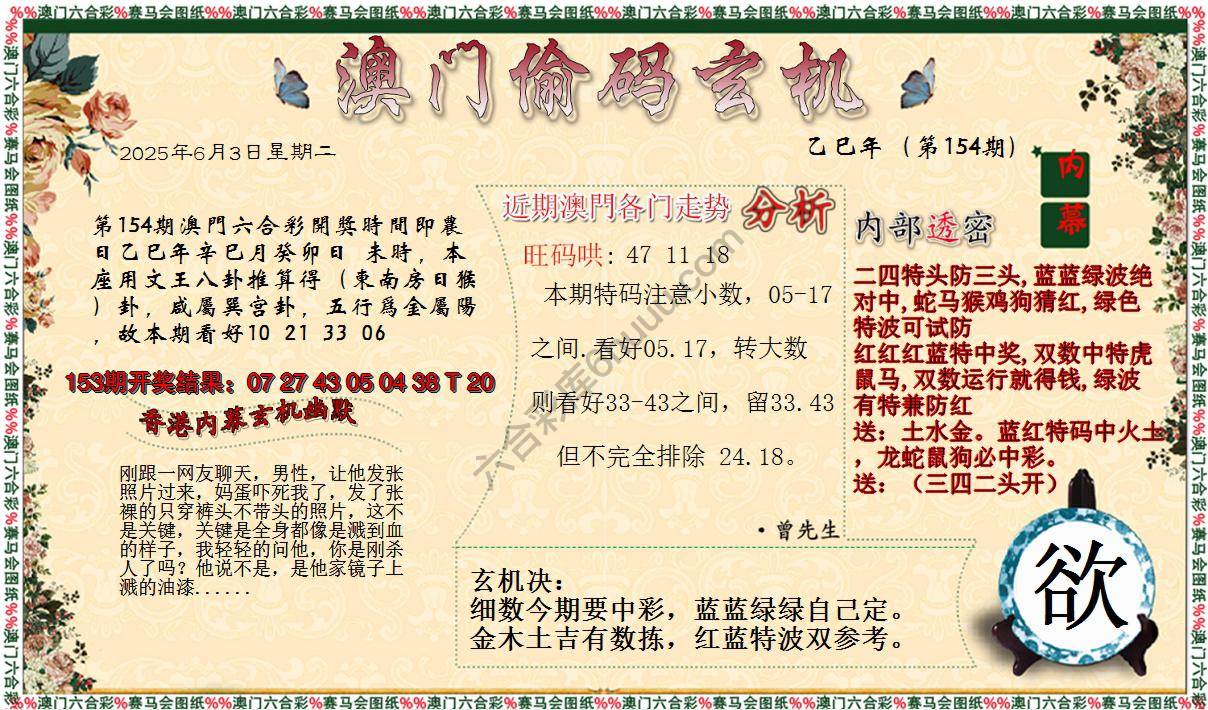 %%澳门六合彩%赛马会图纸%%澳门六合彩%赛马会图纸%%澳门六合彩%赛马会图纸%%澳门六合彩%赛马会图纸%%澳门六合彩%赛马会图纸%%澳门六合彩%赛马会图纸%%
澳门偷码玄机
2025年6月3日星期二
乙巳年（第154期）
内幕
第154期澳門六合彩開獎時間即農
日乙巳年辛巳月癸卯日 未時，本
座用文王八卦推算得（東南房日猴
）卦，咸屬巽宫卦，五行爲金屬陽
，故本期看好10 21 33 06
153期开奖结果：07 27 43 05 04 38 T 20
香港内幕玄机幽默
刚跟一网友聊天，男性，让他发张
照片过来，妈蛋吓死我了，发了张
裸的只穿裤头不带头的照片，这不
是关键，关键是全身都像是溅到血
的样子，我轻轻的问他，你是刚杀
人了吗？他说不是，是他家镜子上
溅的油漆......
近期澳門各门走势 分析
旺码哄: 47 11 18
本期特码注意小数，05-17
之间.看好05.17，转大数
则看好33-43之间，留33.43
但不完全排除 24.18。
·曾先生
内部透密
二四特头防三头,蓝蓝绿波绝
对中,蛇马猴鸡狗猜红,绿色
特波可试防
红红红蓝特中奖,双数中特虎
鼠马,双数运行就得钱,绿波
有特兼防红
送：土水金。蓝红特码中火土
，龙蛇鼠狗必中彩。
送：（三四二头开）
玄机决：
细数今期要中彩，蓝蓝绿绿自己定。
金木土吉有数拣，红蓝特波双参考。
欲
%%澳门六合彩%赛马会图纸%%澳门六合彩%赛马会图纸%%澳门六合彩%赛马会图纸%%澳门六合彩%赛马会图纸%%澳门六合彩%赛马会图纸%%澳门六合彩%赛马会图纸%%